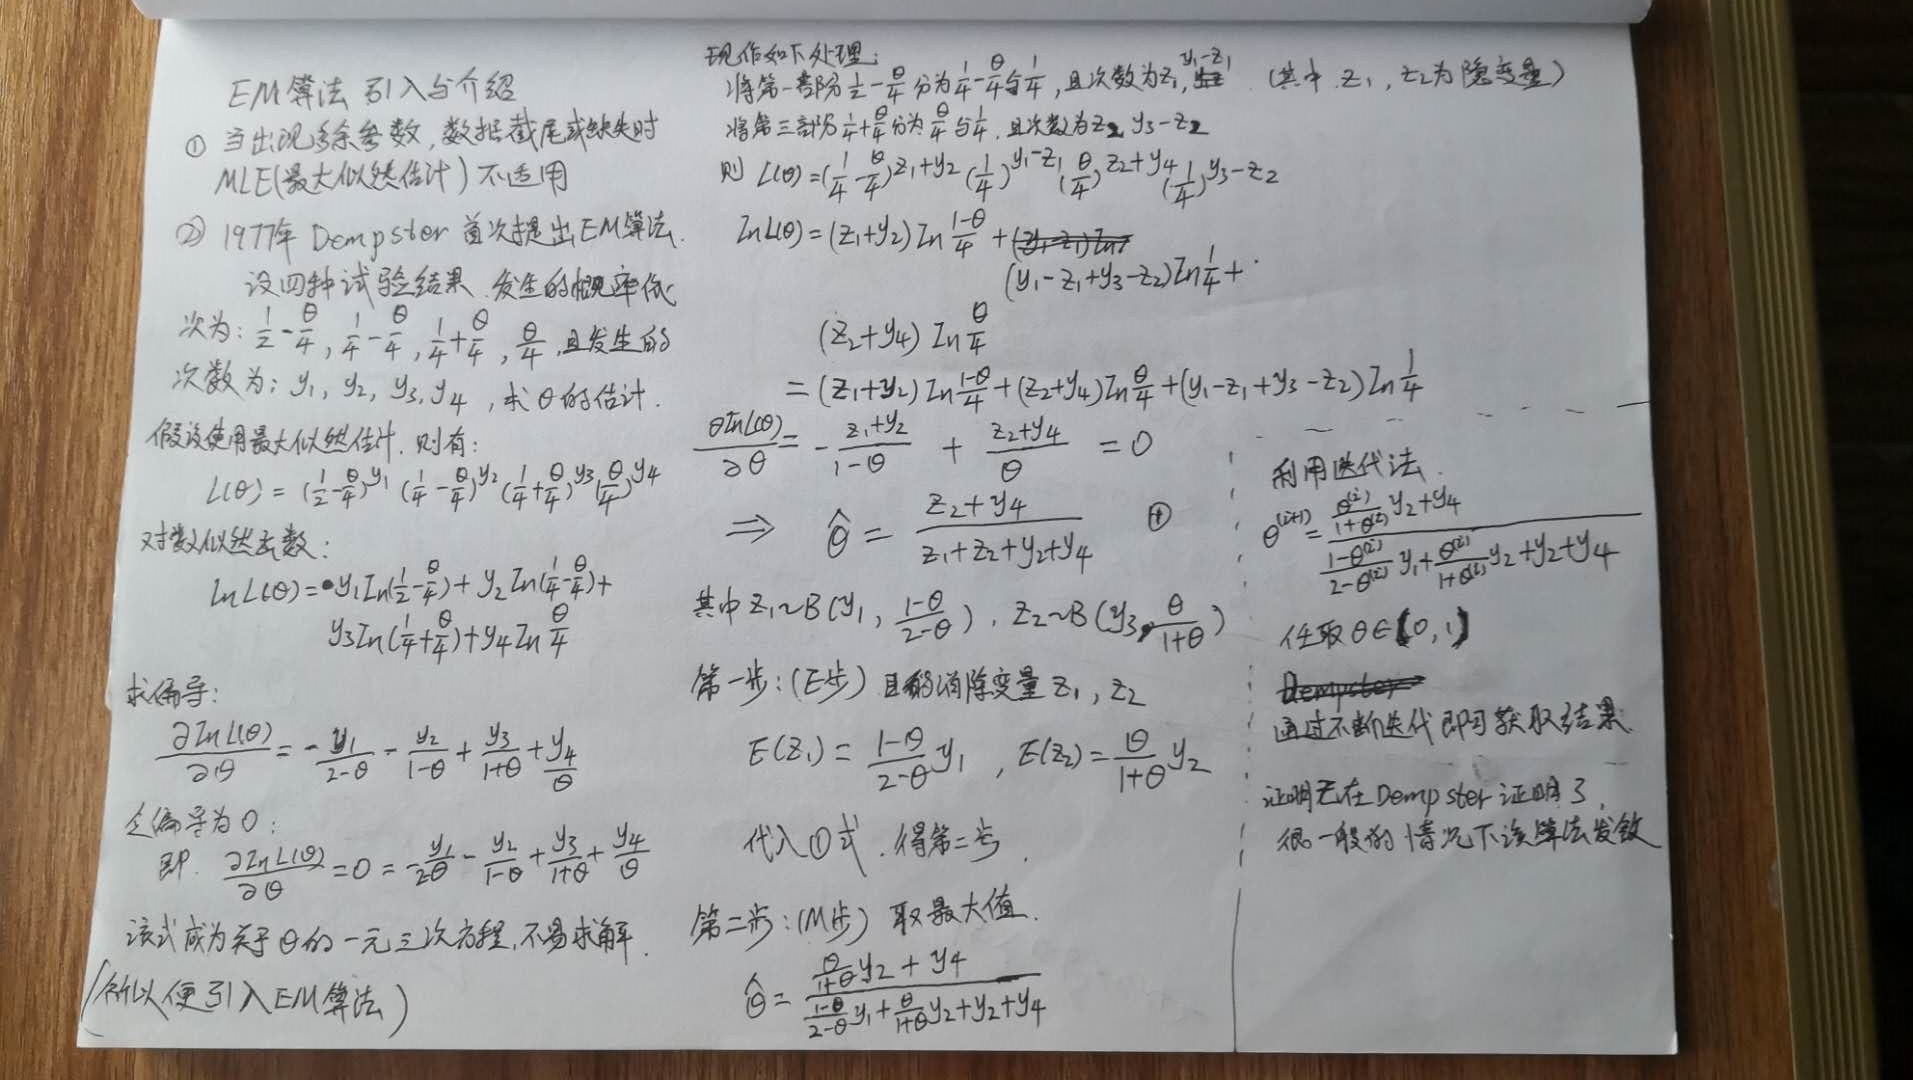 EM算法 引入与介绍
① 当出现多余参数,数据截尾或缺失时
MLE(最大似然估计) 不适用
② 1977年 Dempster 首次提出EM算法.
设四种试验结果 发生的概率依
次为: 1/2 - θ/4, 1/4 - θ/4, 1/4 + θ/4, θ/4, 且发生的
次数为: y₁, y₂, y₃, y₄, 求θ的估计.
假设使用最大似然估计. 则有:
L(θ) = (1/2 - θ/4)^y₁ (1/4 - θ/4)^y₂ (1/4 + θ/4)^y₃ (θ/4)^y₄
对数似然函数:
lnL(θ) = y₁ ln(1/2 - θ/4) + y₂ ln(1/4 - θ/4) +
y₃ ln(1/4 + θ/4) + y₄ ln θ/4
求偏导:
∂lnL(θ)/∂θ = - y₁/(2-θ) - y₂/(1-θ) + y₃/(1+θ) + y₄/θ
令偏导为0:
即. ∂lnL(θ)/∂θ = 0 = - y₁/(2-θ) - y₂/(1-θ) + y₃/(1+θ) + y₄/θ
该式成为关于θ的一元三次方程,不易求解.
(所以便引入EM算法)
现作如下处理:
将第一部分 1/2 - θ/4 分为 1/4 - θ/4 与 1/4, 且次数为z₁, y₁-z₁. (其中 z₁, z₂为隐变量)
将第三部分 1/4 + θ/4 分为 θ/4 与 1/4. 且次数为z₂ y₃-z₂
则 L(θ) = (1/4 - θ/4)^(z₁+y₂) (1/4)^(y₁-z₁) (θ/4)^(z₂+y₄) (1/4)^(y₃-z₂)
lnL(θ) = (z₁+y₂) ln (1-θ)/4 +
(y₁-z₁+y₃-z₂) ln 1/4 +
(z₂+y₄) ln θ/4
= (z₁+y₂) ln (1-θ)/4 + (z₂+y₄) ln θ/4 + (y₁-z₁+y₃-z₂) ln 1/4
∂lnL(θ)/∂θ = - (z₁+y₂)/(1-θ) + (z₂+y₄)/θ = 0
⇒ θ̂ = (z₂+y₄)/(z₁+z₂+y₂+y₄) ①
其中 z₁~B(y₁, (1-θ)/(2-θ)), z₂~B(y₃, θ/(1+θ))
第一步: (E步) 目的消除变量 z₁, z₂
E(z₁) = (1-θ)/(2-θ) y₁, E(z₂) = θ/(1+θ) y₂
代入①式. 得第二步.
第二步: (M步) 取最大值.
θ̂ = (θ/(1+θ) y₂ + y₄) / ((1-θ)/(2-θ) y₁ + θ/(1+θ) y₂ + y₂ + y₄)
利用迭代法.
θ^(i+1) = (θ^(i)/(1+θ^(i)) y₂ + y₄) / ((1-θ^(i))/(2-θ^(i)) y₁ + θ^(i)/(1+θ^(i)) y₂ + y₂ + y₄)
任取 θ∈(0,1)
Dempster
通过不断迭代 即可获取结果.
Dempster 证明了,
很一般的情况下该算法